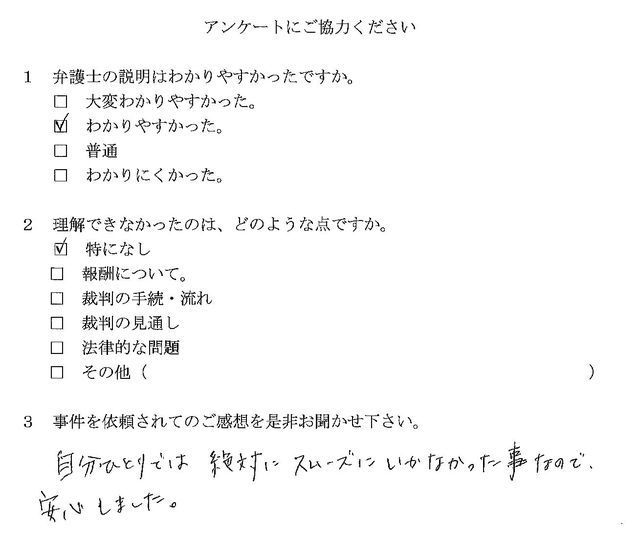 アンケートにご協力ください
1 弁護士の説明はわかりやすかったですか。
□ 大変わかりやすかった。
☑ わかりやすかった。
□ 普通
□ わかりにくかった。
2 理解できなかったのは、どのような点ですか。
☑ 特になし
□ 報酬について。
□ 裁判の手続・流れ
□ 裁判の見通し
□ 法律的な問題
□ その他（ ）
3 事件を依頼されてのご感想を是非お聞かせ下さい。
自分ひとりでは 絶対に スムーズにいかなかった事なので、
安心しました。